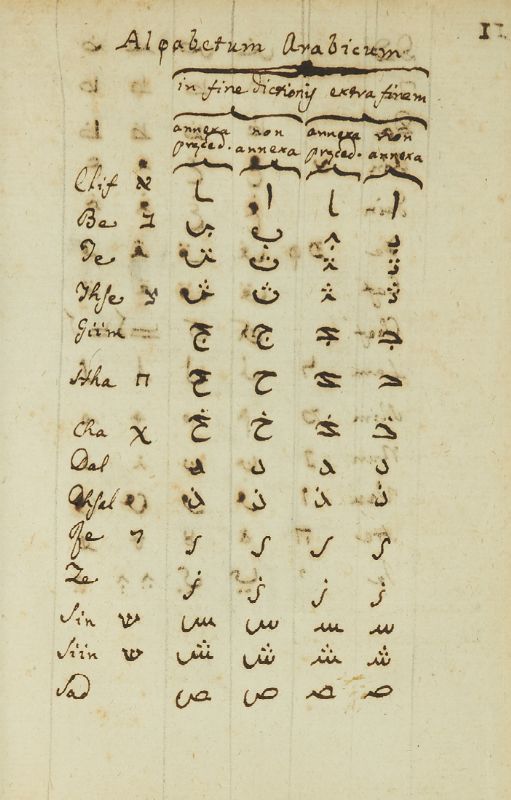 11
Alpabetum Arabicum
in fine dictionis extra finem
annexa non annexa non
præced. annexa præced. annexa
Elif א ـا ا ـا ا
Be ב ـب ب ـبـ بـ
Te ـت ت ـتـ تـ
Thse ـث ث ـثـ ثـ
Giim ـج ج ـجـ جـ
Hha ח ـح ح ـحـ حـ
Cha χ ـخ خ ـخـ خـ
Dal ـد د ـد د
Dhsal ـذ ذ ـذ ذ
Re ר ـر ر ـر ر
Ze ـز ز ـز ز
Sin ש ـس س ـسـ سـ
Siin ש ـش ش ـشـ شـ
Sad ـص ص ـصـ صـ